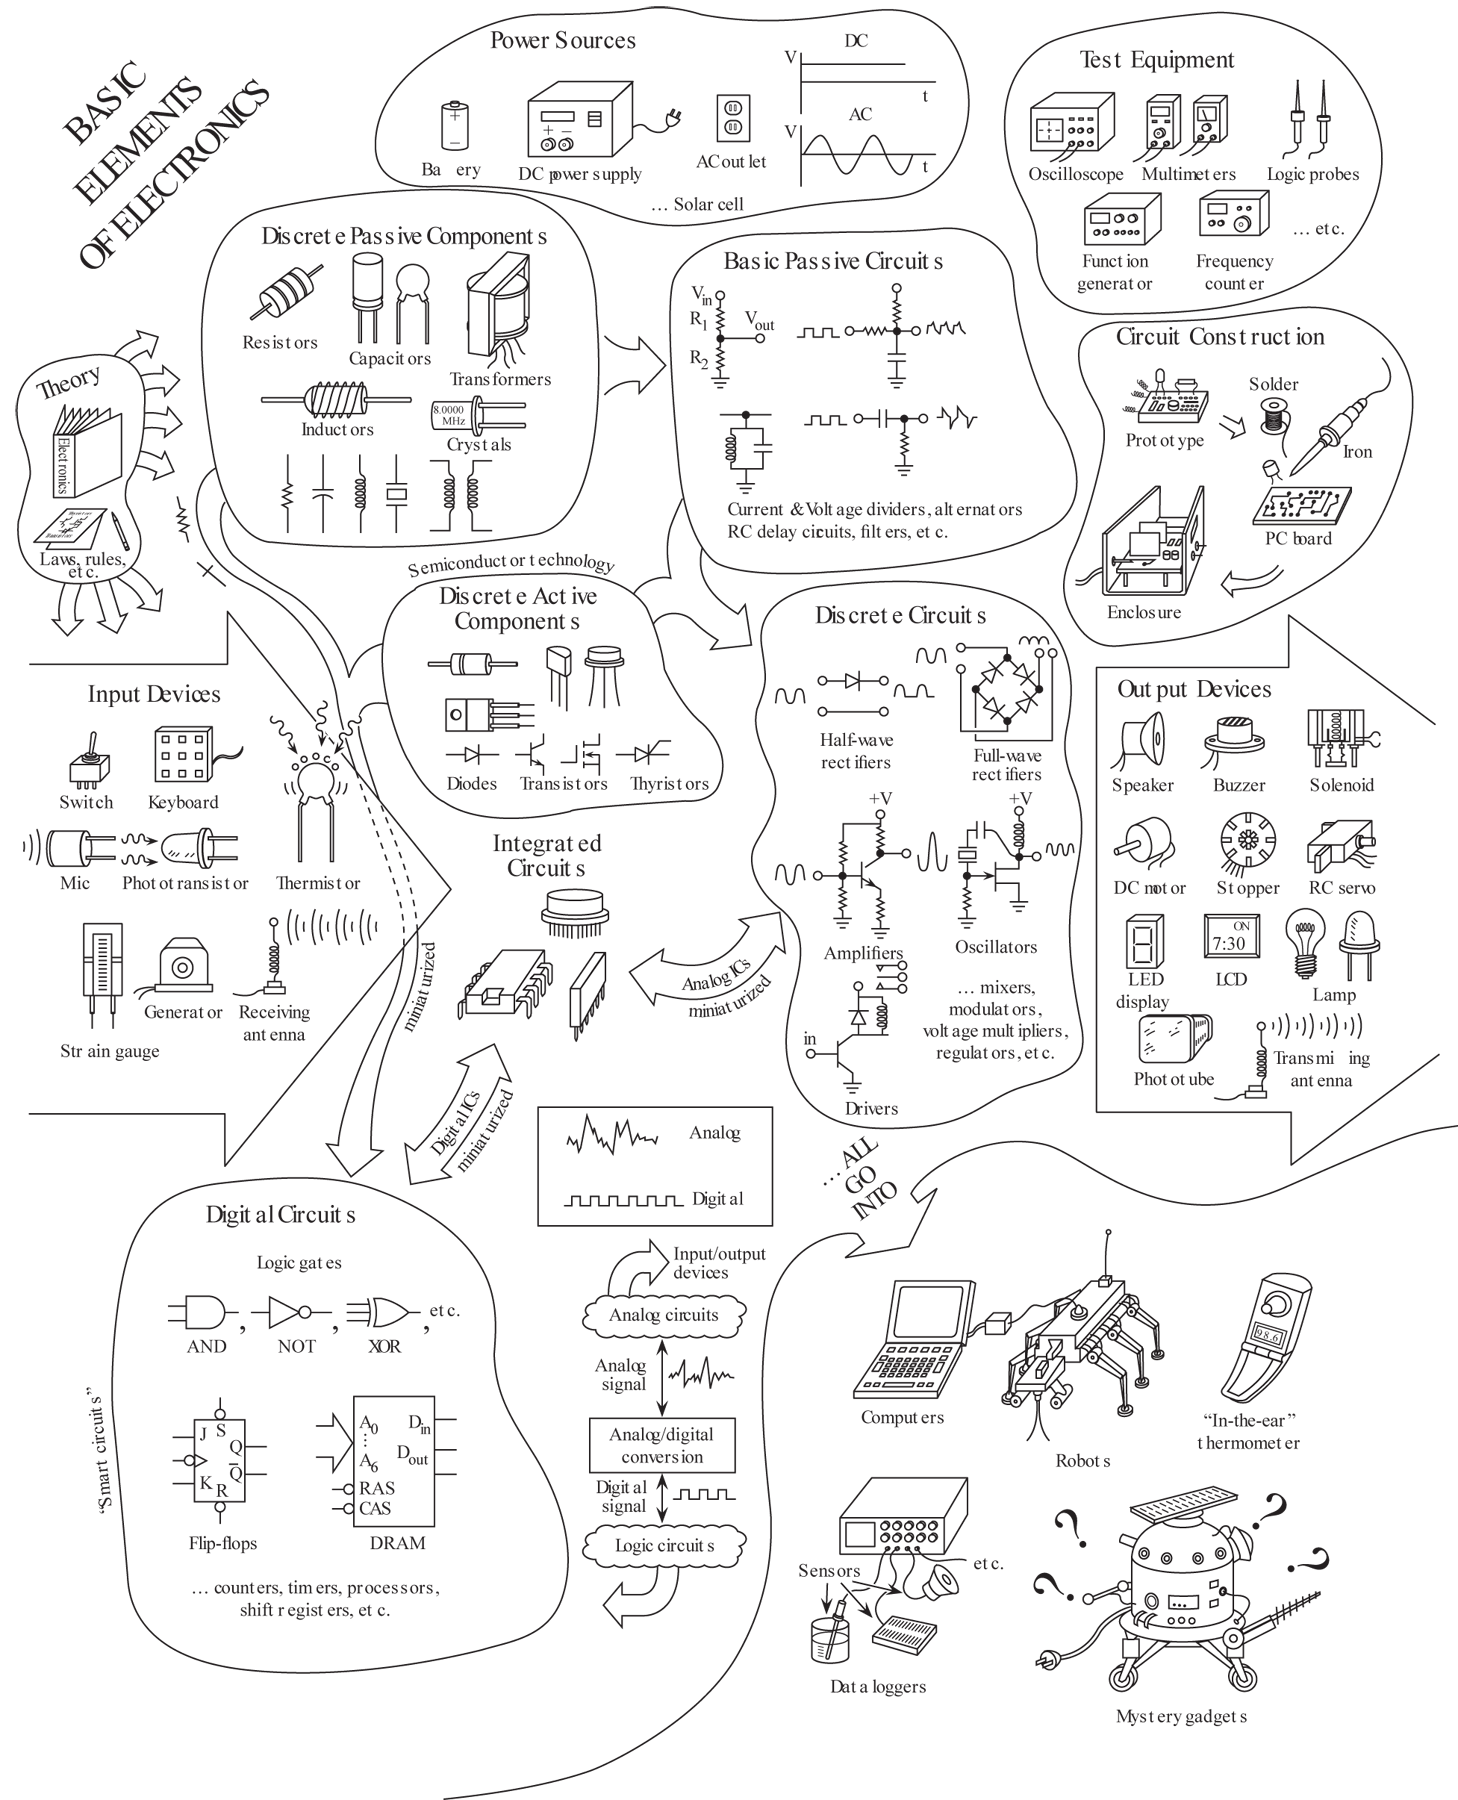 BASIC
ELEMENTS
OF ELECTRONICS
Power Sources
Ba ery
+
−
DC power supply
+ −
AC outlet
... Solar cell
DC
V
t
AC
V
t
Test Equipment
Oscilloscope
Multimeters
Logic probes
Function
generator
Frequency
counter
... etc.
Discrete Passive Components
Resistors
Capacitors
Transformers
Inductors
8.0000
MHz
Crystals
Basic Passive Circuits
Vin
R1
Vout
R2
Current & Voltage dividers, alternators
RC delay circuits, filters, etc.
Circuit Construction
Prototype
Solder
Iron
PC board
Enclosure
Theory
Electronics
Laws, rules,
etc.
Semiconductor technology
Discrete Active
Components
Diodes
Transistors
Thyristors
Discrete Circuits
Half-wave
rectifiers
Full-wave
rectifiers
+V
+V
Amplifiers
Oscillators
in
Drivers
... mixers,
modulators,
voltage multipliers,
regulators, etc.
Input Devices
Switch
Keyboard
Mic
Phototransistor
Thermistor
Strain gauge
Generator
Receiving
antenna
Integrated
Circuits
miniaturized
Analog ICs
miniaturized
Digital ICs
miniaturized
Output Devices
Speaker
Buzzer
Solenoid
DC motor
Stopper
RC servo
LED
display
ON
7:30
LCD
Lamp
Phototube
Transmi ing
antenna
Analog
Digital
... ALL
GO
INTO
Digital Circuits
Logic gates
AND
,
NOT
,
XOR
, etc.
"Smart circuits"
J S Q
K R Q̅
Flip-flops
A0
⋮
A6
RAS
CAS
Din
Dout
DRAM
... counters, timers, processors,
shift registers, etc.
Input/output
devices
Analog circuits
Analog
signal
Analog/digital
conversion
Digital
signal
Logic circuits
Computers
Robots
98.6
“In-the-ear”
thermometer
Sensors
etc.
Data loggers
? ? ? ?
Mystery gadgets